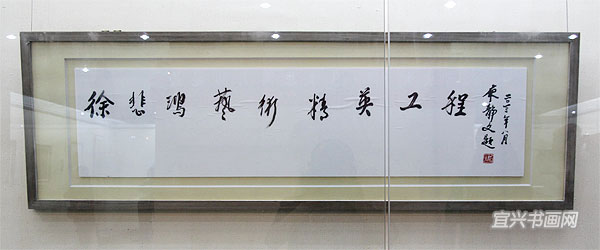 徐悲鸿藝術精英工程
二〇一三年八月
廖静文题
宜兴书画网